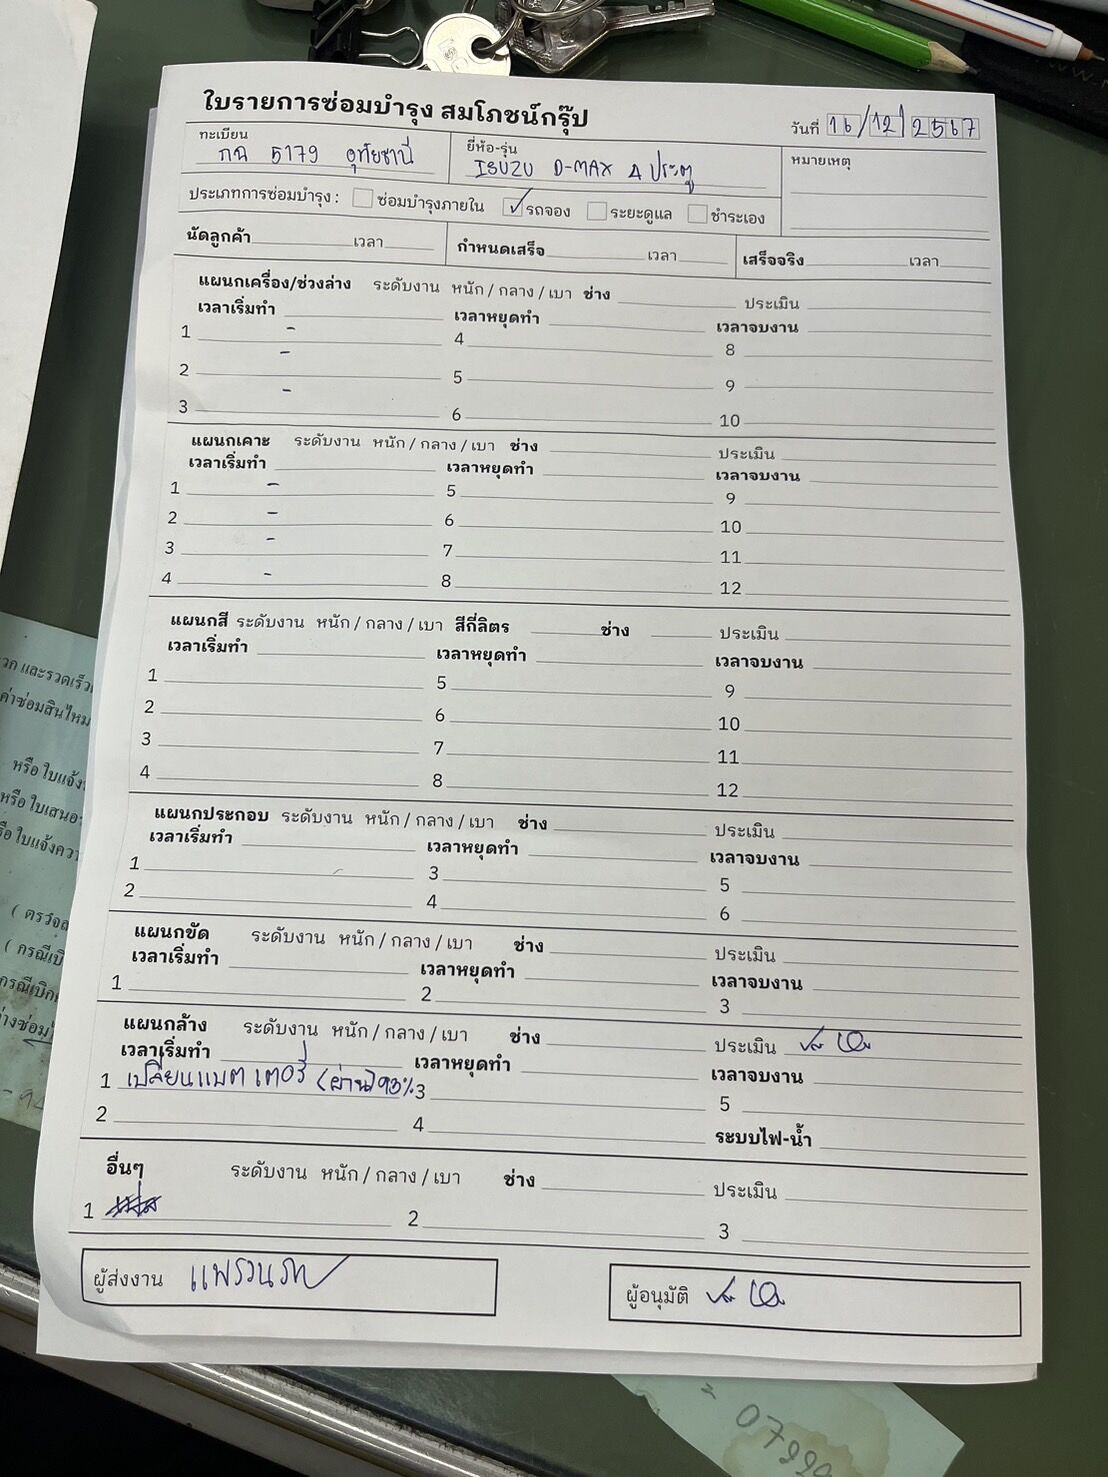 ใบรายการซ่อมบำรุง สมโภชน์กรุ๊ป
วันที่ 16/12/2567
ทะเบียน กฉ 5179 อุทัยธานี
ยี่ห้อ-รุ่น ISUZU D-MAX 4 ประตู
หมายเหตุ
ประเภทการซ่อมบำรุง : ซ่อมบำรุงภายใน ✓ รถจอง ระยะดูแล ชำระเอง
นัดลูกค้า เวลา กำหนดเสร็จ เวลา เสร็จจริง เวลา
แผนกเครื่อง/ช่วงล่าง ระดับงาน หนัก / กลาง / เบา ช่าง ประเมิน
เวลาเริ่มทำ เวลาหยุดทำ เวลาจบงาน
1 - 4 8
2 - 5 9
3 - 6 10
แผนกเคาะ ระดับงาน หนัก / กลาง / เบา ช่าง ประเมิน
เวลาเริ่มทำ เวลาหยุดทำ เวลาจบงาน
1 - 5 9
2 - 6 10
3 - 7 11
4 - 8 12
แผนกสี ระดับงาน หนัก / กลาง / เบา สีกี่ลิตร ช่าง ประเมิน
เวลาเริ่มทำ เวลาหยุดทำ เวลาจบงาน
1 5 9
2 6 10
3 7 11
4 8 12
แผนกประกอบ ระดับงาน หนัก / กลาง / เบา ช่าง ประเมิน
เวลาเริ่มทำ เวลาหยุดทำ เวลาจบงาน
1 3 5
2 4 6
แผนกขัด ระดับงาน หนัก / กลาง / เบา ช่าง ประเมิน
เวลาเริ่มทำ เวลาหยุดทำ เวลาจบงาน
1 2 3
แผนกล้าง ระดับงาน หนัก / กลาง / เบา ช่าง ประเมิน
เวลาเริ่มทำ เวลาหยุดทำ เวลาจบงาน
1 เปลี่ยนแบตเตอรี่ (ผ่าน) 93% 3 5
2 4 ระบบไฟ-น้ำ
อื่นๆ ระดับงาน หนัก / กลาง / เบา ช่าง ประเมิน
1 2 3
ผู้ส่งงาน
ผู้อนุมัติ
หรือ ใบแจ้ง
หรือ ใบเสนอ
( ตรวจส
( กรณีเบิ
07999